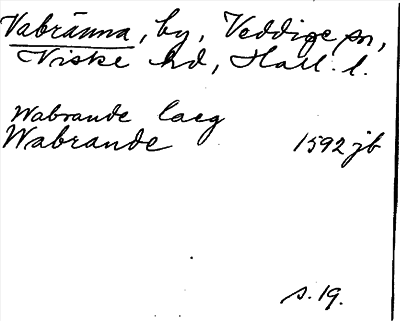 Vabränna, by, Veddige sn,
Viske hd, Hall. l.
Wabrande laeg
Wabrande 1592 jb
s. 19.